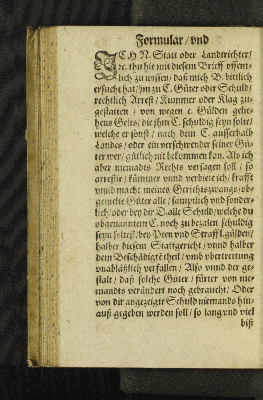 Formular / vnd
ICH N. Statt oder Landtrichter /
rc. thu hie mit diesem Brieff offent-
lich zu wissen / daß mich B. bittlich
ersucht hat / jm zu C. Güter oder Schuld /
rechtlich Arrest / Kummer oder Klag zu-
gestatten / von wegen c. Gülden gelie-
hens Gelts / die jhm C. schuldig seyn solte /
welche er sonst / nach dem C. ausserhalb
Landes / oder ein verschwender seiner Gü-
ter wer / gütlich nit bekommen kan. Als ich
aber niemands Rechts versagen soll / so
arrestir / kümmer vnnd verbiete ich / krafft
vnnd macht meines Gerichtszwangs / ob-
gemelte Güter alle / sämptlich vnd sonder-
lich / oder bey dir D. alle Schuld / welche du
obgenanntem C. noch zu bezalen schuldig
seyn soltest / bey Peen vnd Straff l. gülden /
halber diesem Stattgericht / vnnd halber
dem Beschädigtē theil / vmb vbertrettung
vnabläßlich verfallen / Also vnnd der ge-
stalt / daß solche Güter / fürter von nie-
mandts verändert noch gebraucht / Oder
von dir angezeigte Schuld niemands hin-
auß gegeben werden soll / so lang vnd viel
biß